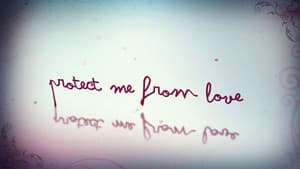 protect me from love